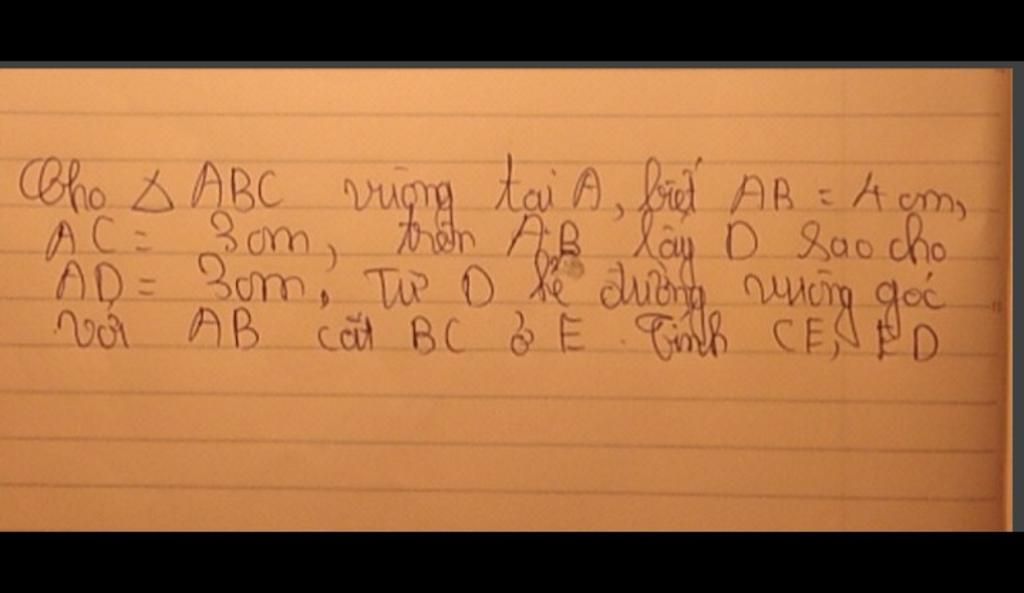 Cho Δ ABC vuông tại A, biết AB = 4 cm,
AC = 3cm, trên AB lấy D sao cho
AD = 3cm. Từ D kẻ đường vuông góc
với AB cắt BC ở E. Tính CE, ED